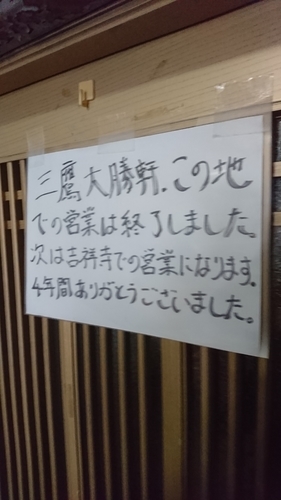 三鷹大勝軒.この地
での営業は終了しました。
次は吉祥寺での営業になります.
4年間ありがとうございました。